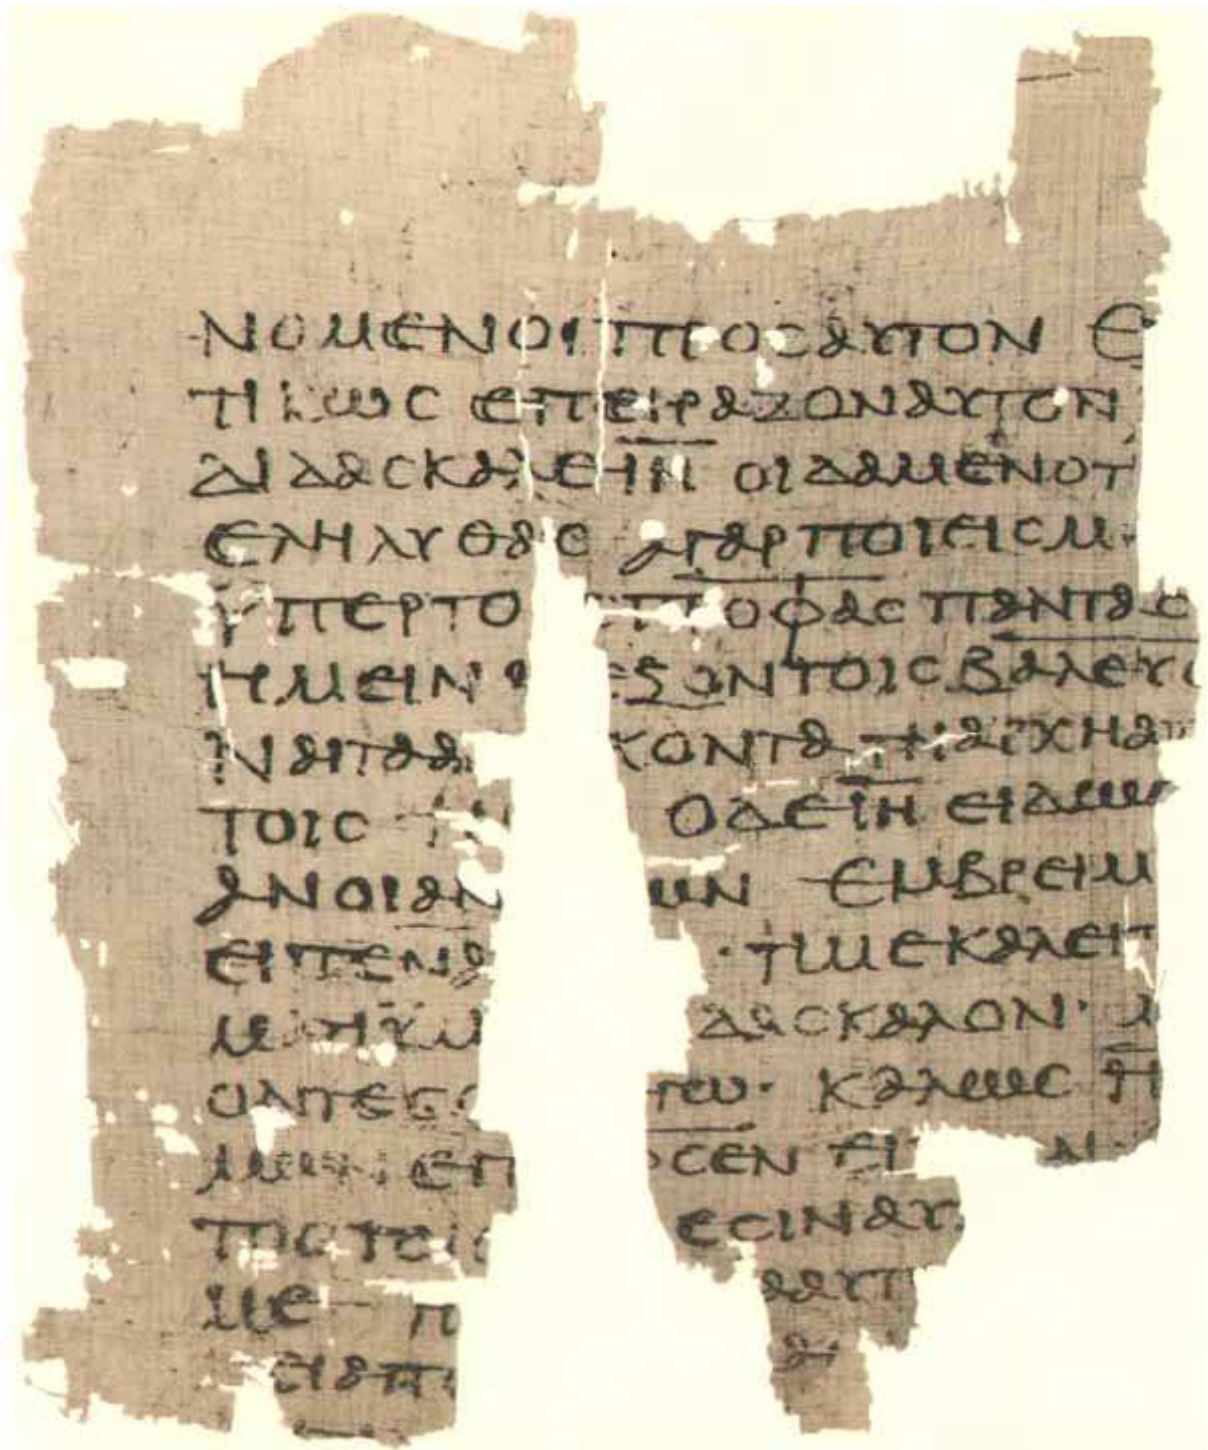 ΝΟΜΕΝΟΙ ΠΡΟΣ ΑΥΤΟΝ Ε
ΤΙΚΩΣ ΕΠΕΙΡΑΖΟΝ ΑΥΤΟΝ
ΔΙΔΑΣΚΑΛΕ ΙΗ ΟΙΔΑΜΕΝ ΟΤ
ΕΛΗΛΥΘΑΣ Α ΓΑΡ ΠΟΙΕΙΣ Μ
ΥΠΕΡ ΤΟ Σ ΠΡΟΦΑΣ ΠΑΝΤΑΣ
ΗΜΕΙΝ ΕΞΟΝ ΤΟΙΣ ΒΑΛΕΥΣ
ΝΑΙ ΤΑ ΑΝ ΚΟΝΤΑ ΤΗ ΑΡΧΗ ΑΠ
ΤΟΙΣ Η Μ Ο ΔΕ ΙΗ ΕΙΔΩΣ
ΑΝΟΙΑΝ ΩΝ ΕΜΒΡΕΙΜ
ΕΙΠΕΝ Α · ΤΙ ΜΕ ΚΑΛΕΙΤ
ΜΑΤΙ ΥΜ ΔΑΣΚΑΛΟΝ · Μ
ΟΝΤΕΣ Ο ΓΩ · ΚΑΛΩΣ Η
ΜΩΝ ΕΠ ΟΣΕΝ ΕΙ Ν
ΤΟΣ ΤΟΙΣ ΕΣΙΝ ΑΥ
ΜΕ Η Α ΑΥΤ
ΕΙ ΑΠ Α